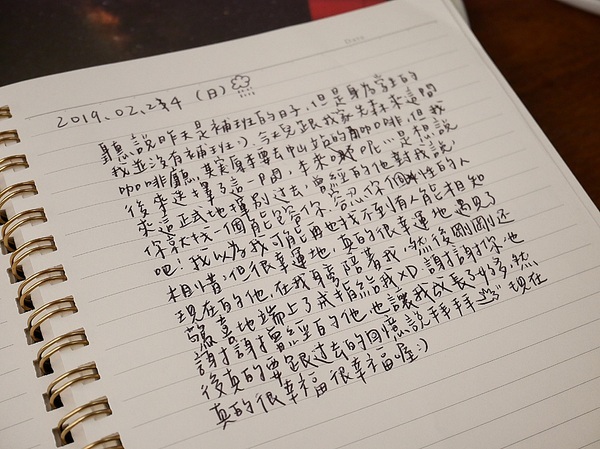 Date
2019.02.24 (日)
聽說昨天是補班的日子,但是身為學生的
我並沒有補班:) 今兒跟我家先森來這間
咖啡廳,其實原本要去中山站的咖啡,但我
後來選擇了這一間,本來呢,是想說
來這正式地揮別過去,曾經的他對我說
你就找一個能包容你、忍你個性的人
吧,我以為我可能再也找不到有人能相知
相惜,但很幸運地,真的很幸運地遇見了
現在的他,在我身旁陪著我,然後剛剛還
驚喜地端上了戒指給我XD 謝謝你,也
謝謝曾經的他,也讓我成長了好多,然
後真的要跟過去的回憶說拜拜 現在
真的很幸福很幸福喔:)